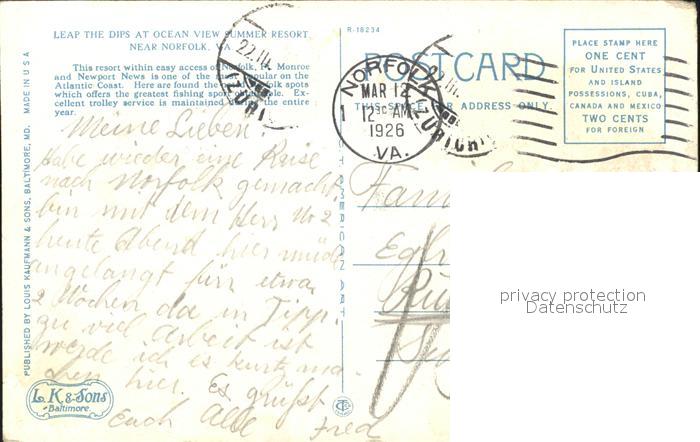 LEAP THE DIPS AT OCEAN VIEW SUMMER RESORT
NEAR NORFOLK, VA.
This resort within easy access of Norfolk, Ft. Monroe
and Newport News is one of the most popular on the
Atlantic Coast. Here are found the Norfolk spots
which offers the greatest fishing sport obtainable. Ex-
cellent trolley service is maintained during the entire
year.
Meine Lieben!
Habe wieder eine Reise
nach Norfolk gemacht
bin mit dem Herr No 2
heute Abend hier müde
angelangt für etwa
2 Wochen da in
zu viel Arbeit ist
werde ich es kurz ma-
chen hier. Es grüßt
Euch Alle Fred
PUBLISHED BY LOUIS KAUFMANN & SONS, BALTIMORE, MD. MADE IN U S A
L. K & Sons
Baltimore.
R-18234
POSTCARD
THIS SPACE FOR ADDRESS ONLY.
PLACE STAMP HERE
ONE CENT
FOR UNITED STATES
AND ISLAND
POSSESSIONS, CUBA,
CANADA AND MEXICO
TWO CENTS
FOR FOREIGN
NORFOLK
MAR 12
1 12 30 AM
1926
VA.
22.III.
22.III.
AMERICAN ART
Fam
privacy protection
Datenschutz